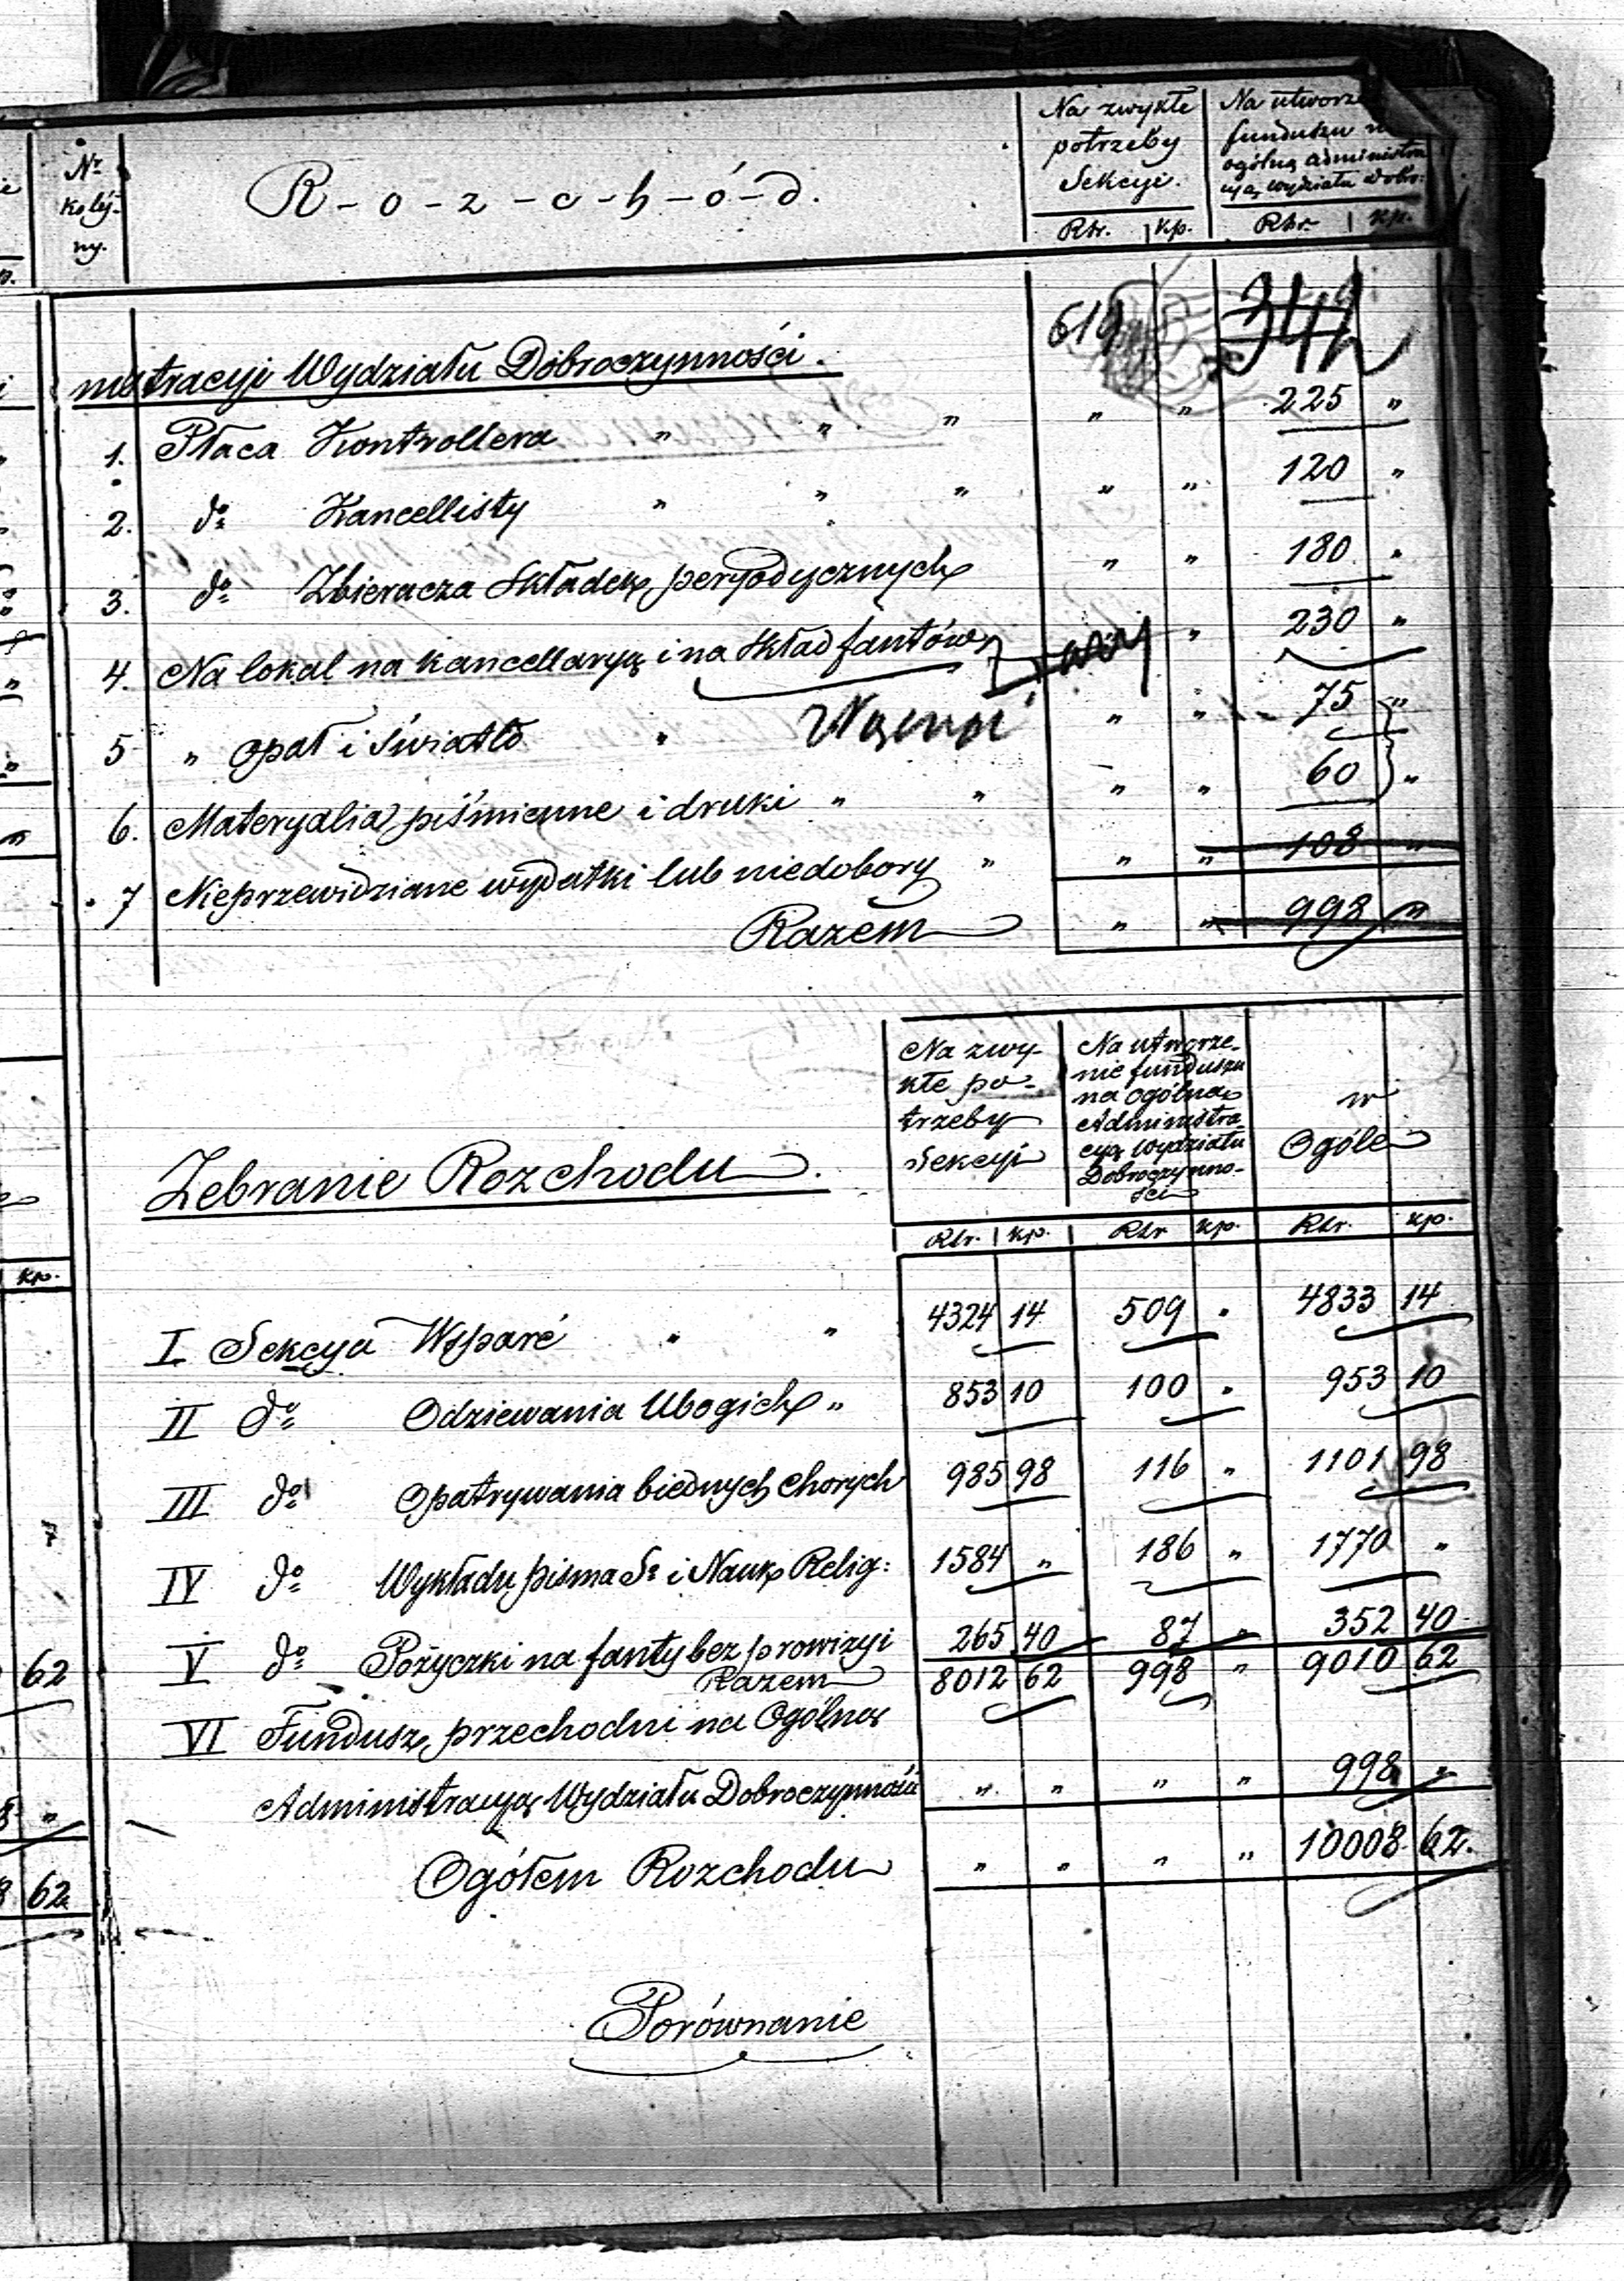 Nr kolej- ny.
R-o-z-c-h-ó-d.
Na zwykłe potrzeby Sekcyi.
Na utworze funduszu ogólną administra cyą wydziału Dobr:
Rsr. kp. Rsr. kp.
nistracyi Wydziału Dobroczynności.
619 342
1. Płaca Kontrollera " " " " " 225 "
2. do Kancellisty " " " " " 120 "
3. do Zbieracza Składek peryodycznych " " 180 "
4. Na lokal na kancellaryą i na skład fantów " 230 "
5 " opał i światło " " " 75 "
6. Materyalia piśmienne i druki " " " " 60 "
7 Nieprzewidziane wydatki lub niedobory " " " 108 "
Razem " " 998 "
Zebranie Rozchodu.
Na zwy- kłe po- trzeby Sekcyi
Na utworze- nie funduszu na ogólną Administra- cyą Wydziału Dobroczynno- ści
w Ogóle
Rsr. kp. Rsr kp. Rsr. kp.
I Sekcya Wsparć " " 4324 14 509 " 4833 14
II do Odziewania Ubogich " 853 10 100 " 953 10
III do Opatrywania biednych chorych 985 98 116 " 1101 98
IV do Wykładu pisma S. i Nauk Relig: 1584 " 186 " 1770 "
V do Pożyczki na fanty bez prowizyi 265 40 87 " 352 40
Razem 8012 62 998 " 9010 62
VI Fundusz przechodni na Ogólną
Administracyą Wydziału Dobroczynności " " " " 998 "
Ogółem Rozchodu " " " " 10008 62.
Porównanie
kp.
62
62